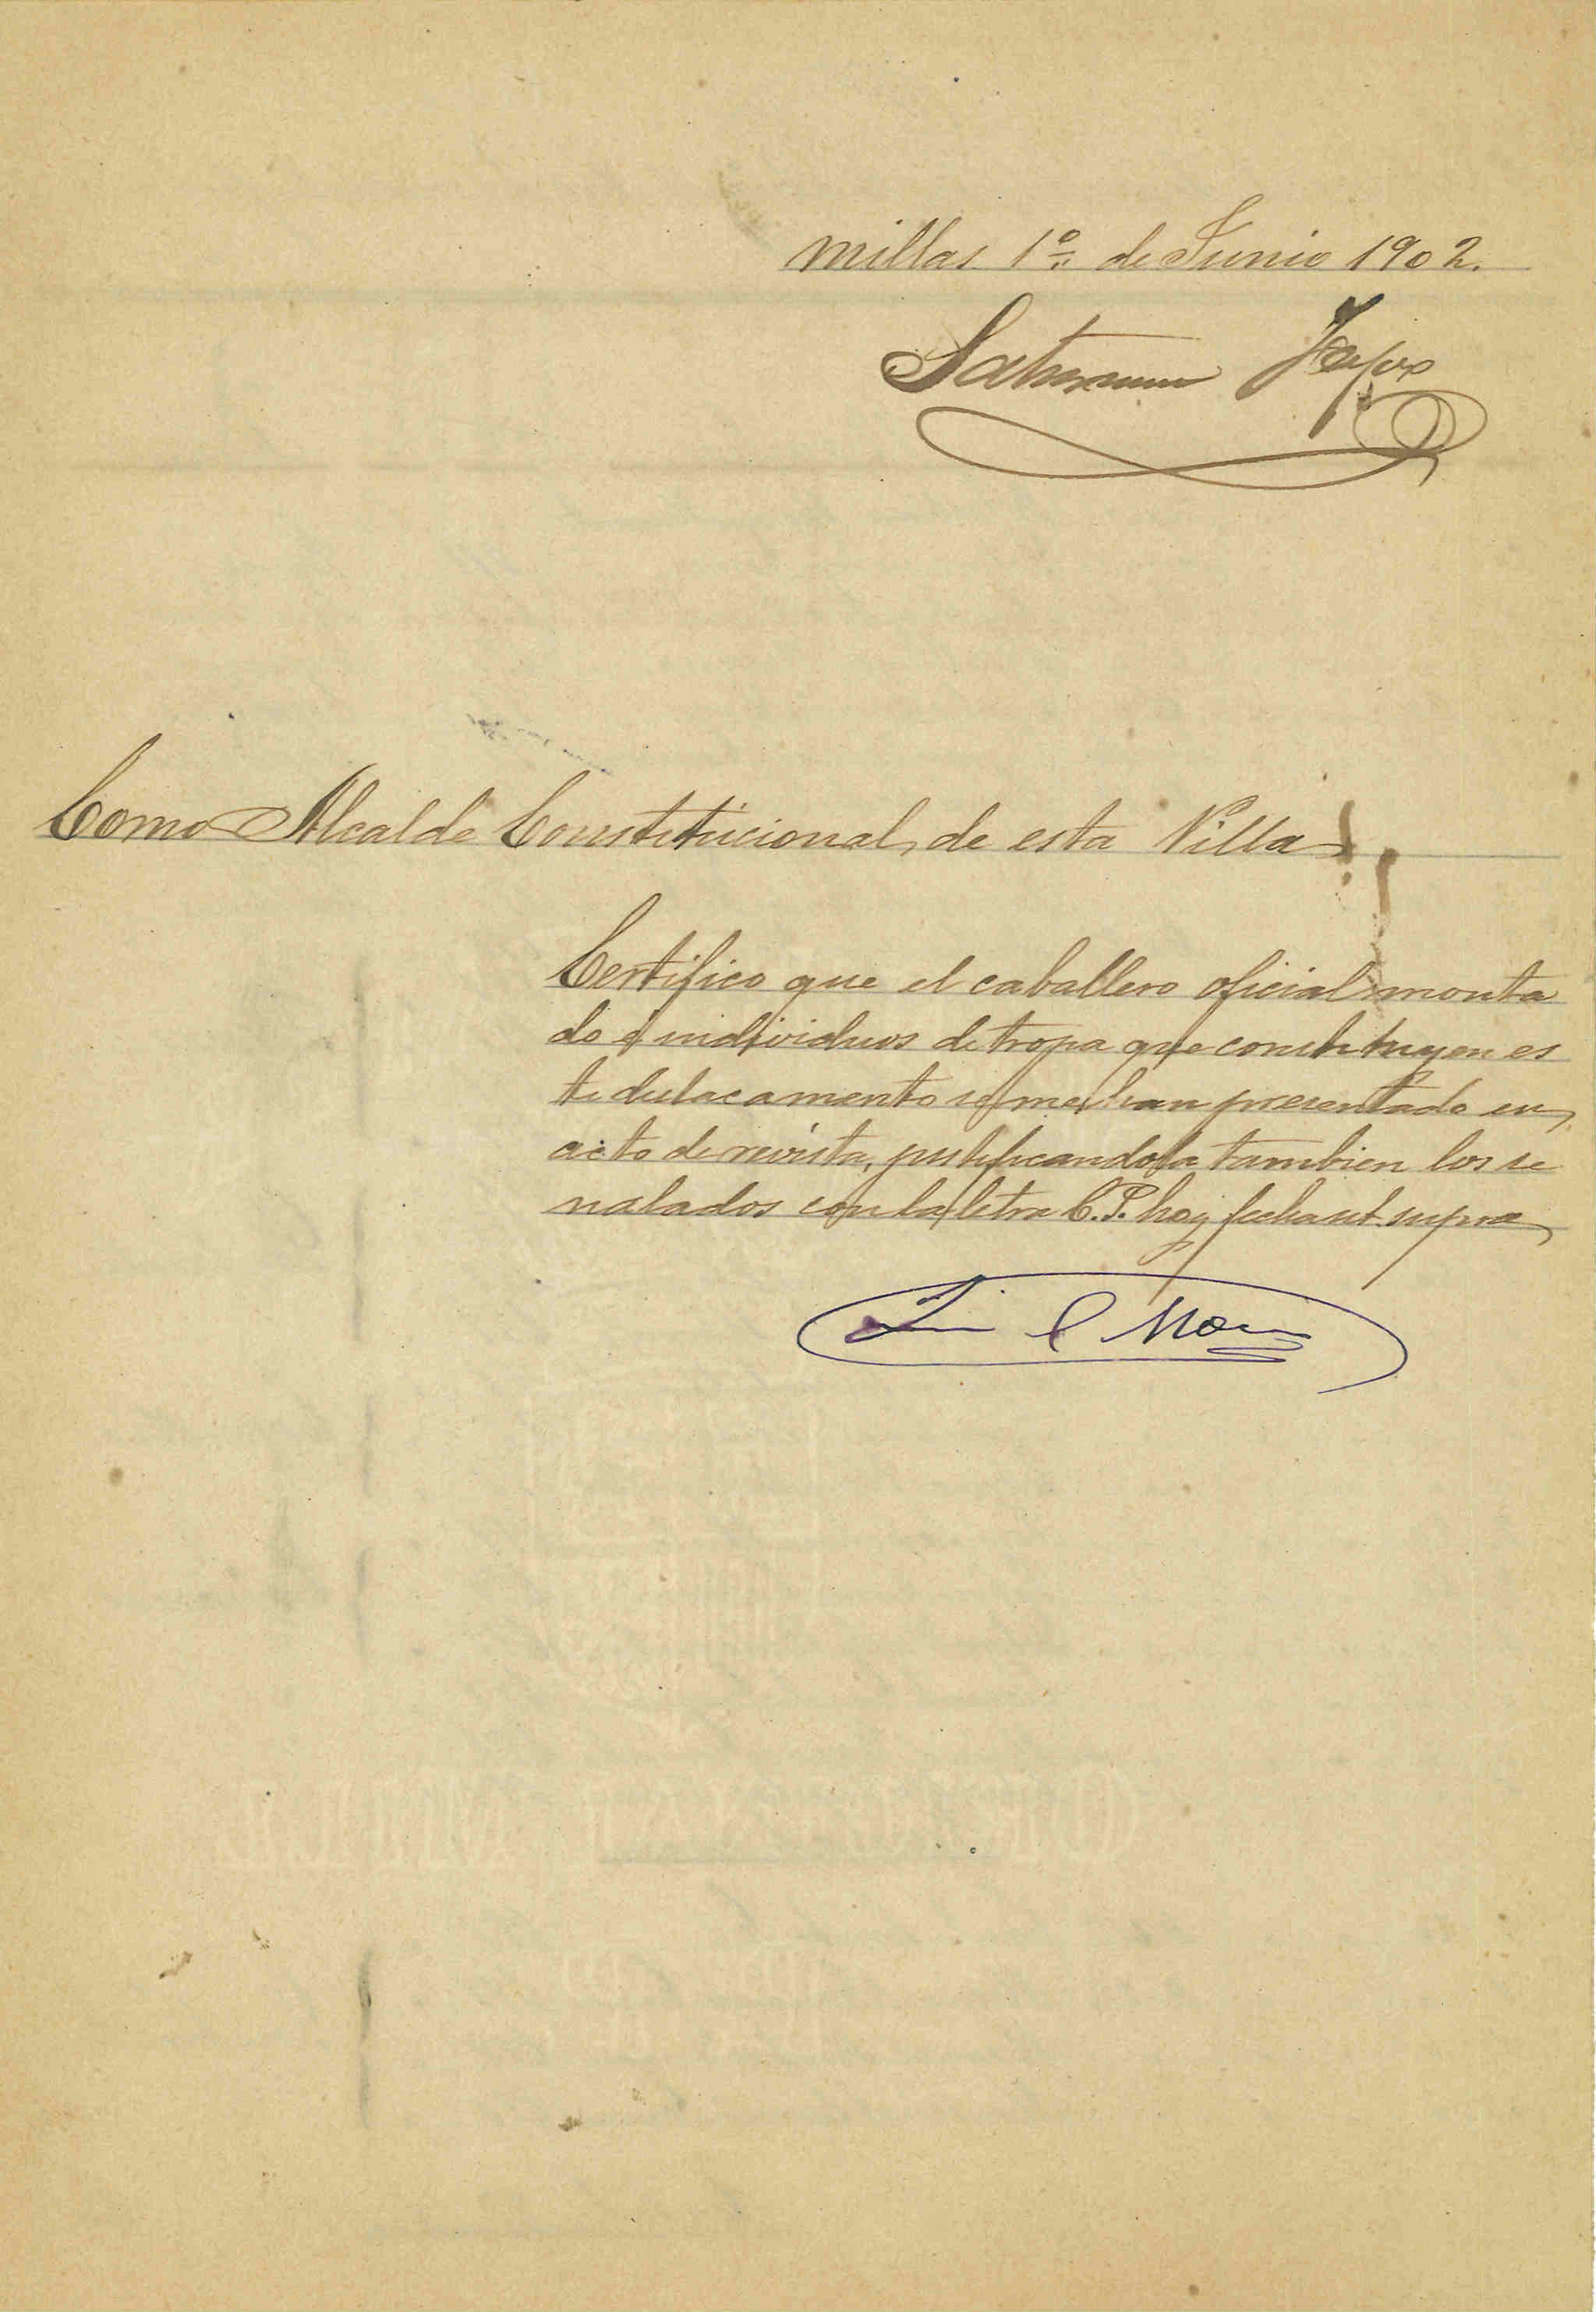 Millas 1º de Junio 1902.
Saturnino
Como Alcalde Constitucional, de esta Villa
Certifico que el caballero oficial monta
do é individuos de tropa que constituyen es
te destacamento se me han presentado en
acto de revista, justificandola tambien los se
nalados con la letra C.P. hoy fecha ut supra